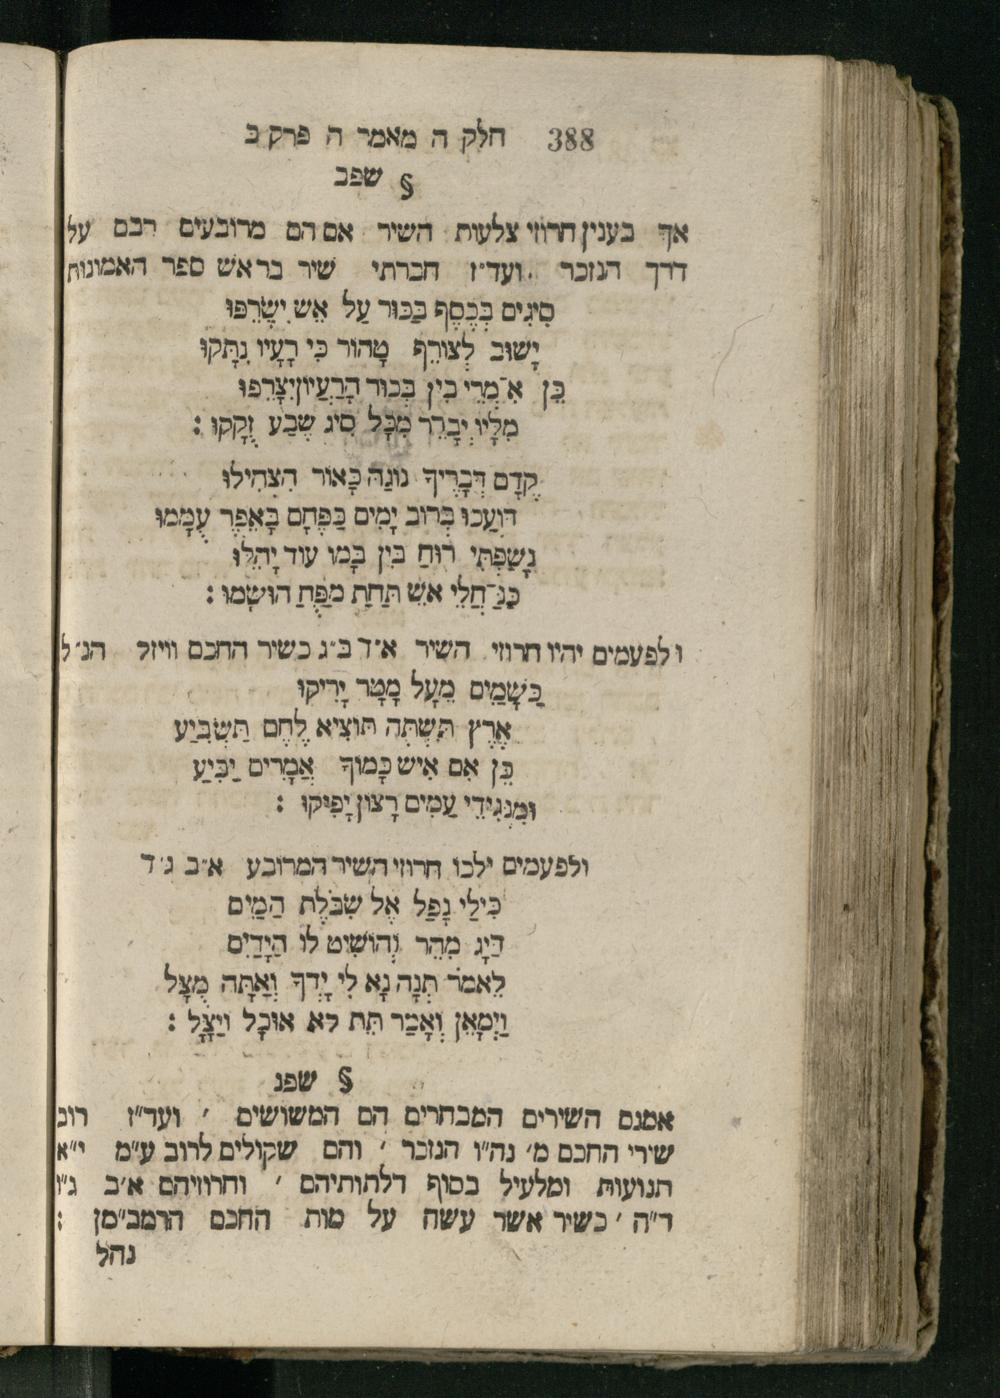 388 חלק ה מאמר ה פרק ב
§ שפב
אך בענין חרוזי צלעות השיר אם הם מרובעים רבם על
דרך הנזכר ועד״ז חברתי שיר בראש ספר האמונות
סִיגִים בְּכֶסֶף בַּכּוּר עַל אֵשׁ יִשָּׂרֵפוּ
יָשׁוּב לְצוֹרֵף טָהוֹר כִּי רָעָיו נִתָּקוּ
כֵּן אִמְרֵי בִין בְּכוּר הָרַעְיוֹן יִצָּרֵפוּ
מִלָּיו יְבָרֵר מִכָּל סִיג שֶׁבַע זֻקָּקוּ :
קֶדֶם דְּבָרֶיךָ נוֹגַהּ כָּאוֹר הִצְהִילוּ
דּוֹעֲכוּ בְּרוֹב יָמִים כַּפֶּחָם בָּאֵפֶר עֻמָּמוּ
נָשַׁפְתִּי רוּחַ בִּין בָּמוֹ עוֹד יָהֵלּוּ
כְּגַּחֲלֵי אֵשׁ תַּחַת מַפֻּחַ הוּשָׂמוּ :
ולפעמים יהיו חרוזי השיר א״ד ב״ג כשיר החכם וויזל הנ״ל
כַּשָּׁמַיִם מֵעָל מָטָר יָרִיקוּ
אֶרֶץ תִּשְׁתֶּה תּוֹצִיא לֶחֶם תַּשְׂבִּיעַ
כֵּן אִם אִישׁ כָּמוֹךָ אֲמָרִים יַבִּיעַ
וּמִנְּגִידֵי עַמִּים רָצוֹן יָפִיקוּ :
ולפעמים ילכו חרוזי השיר המרובע א״ב ג״ד
כִּילַי נָפַל אֶל שִׁבֹּלֶת הַמַּיִם
דַּיָּג מִהֵר וְהוֹשִׁיט לוֹ הַיָּדַיִם
לֵאמֹר תְּנָה נָא לִי יָדְךָ וְאַתָּה מֻצָּל
וַיְמָאֵן וְאָמַר תֵּת לֹא אוּכַל וְיֻצָּל :
§ שפג
אמנם השירים המבחרים הם המשושים ׳ ועד״ז רוב
שירי החכם מ׳ נה״ו הנזכר ׳ והם שקולים לרוב ע״מ י״א
תנועות ומלעיל בסוף דלתותיהם ׳ וחרוזיהם א״ב ג״ו
ד״ה ׳ כשיר אשר עשה על מות החכם הרמב״מן :
נהל